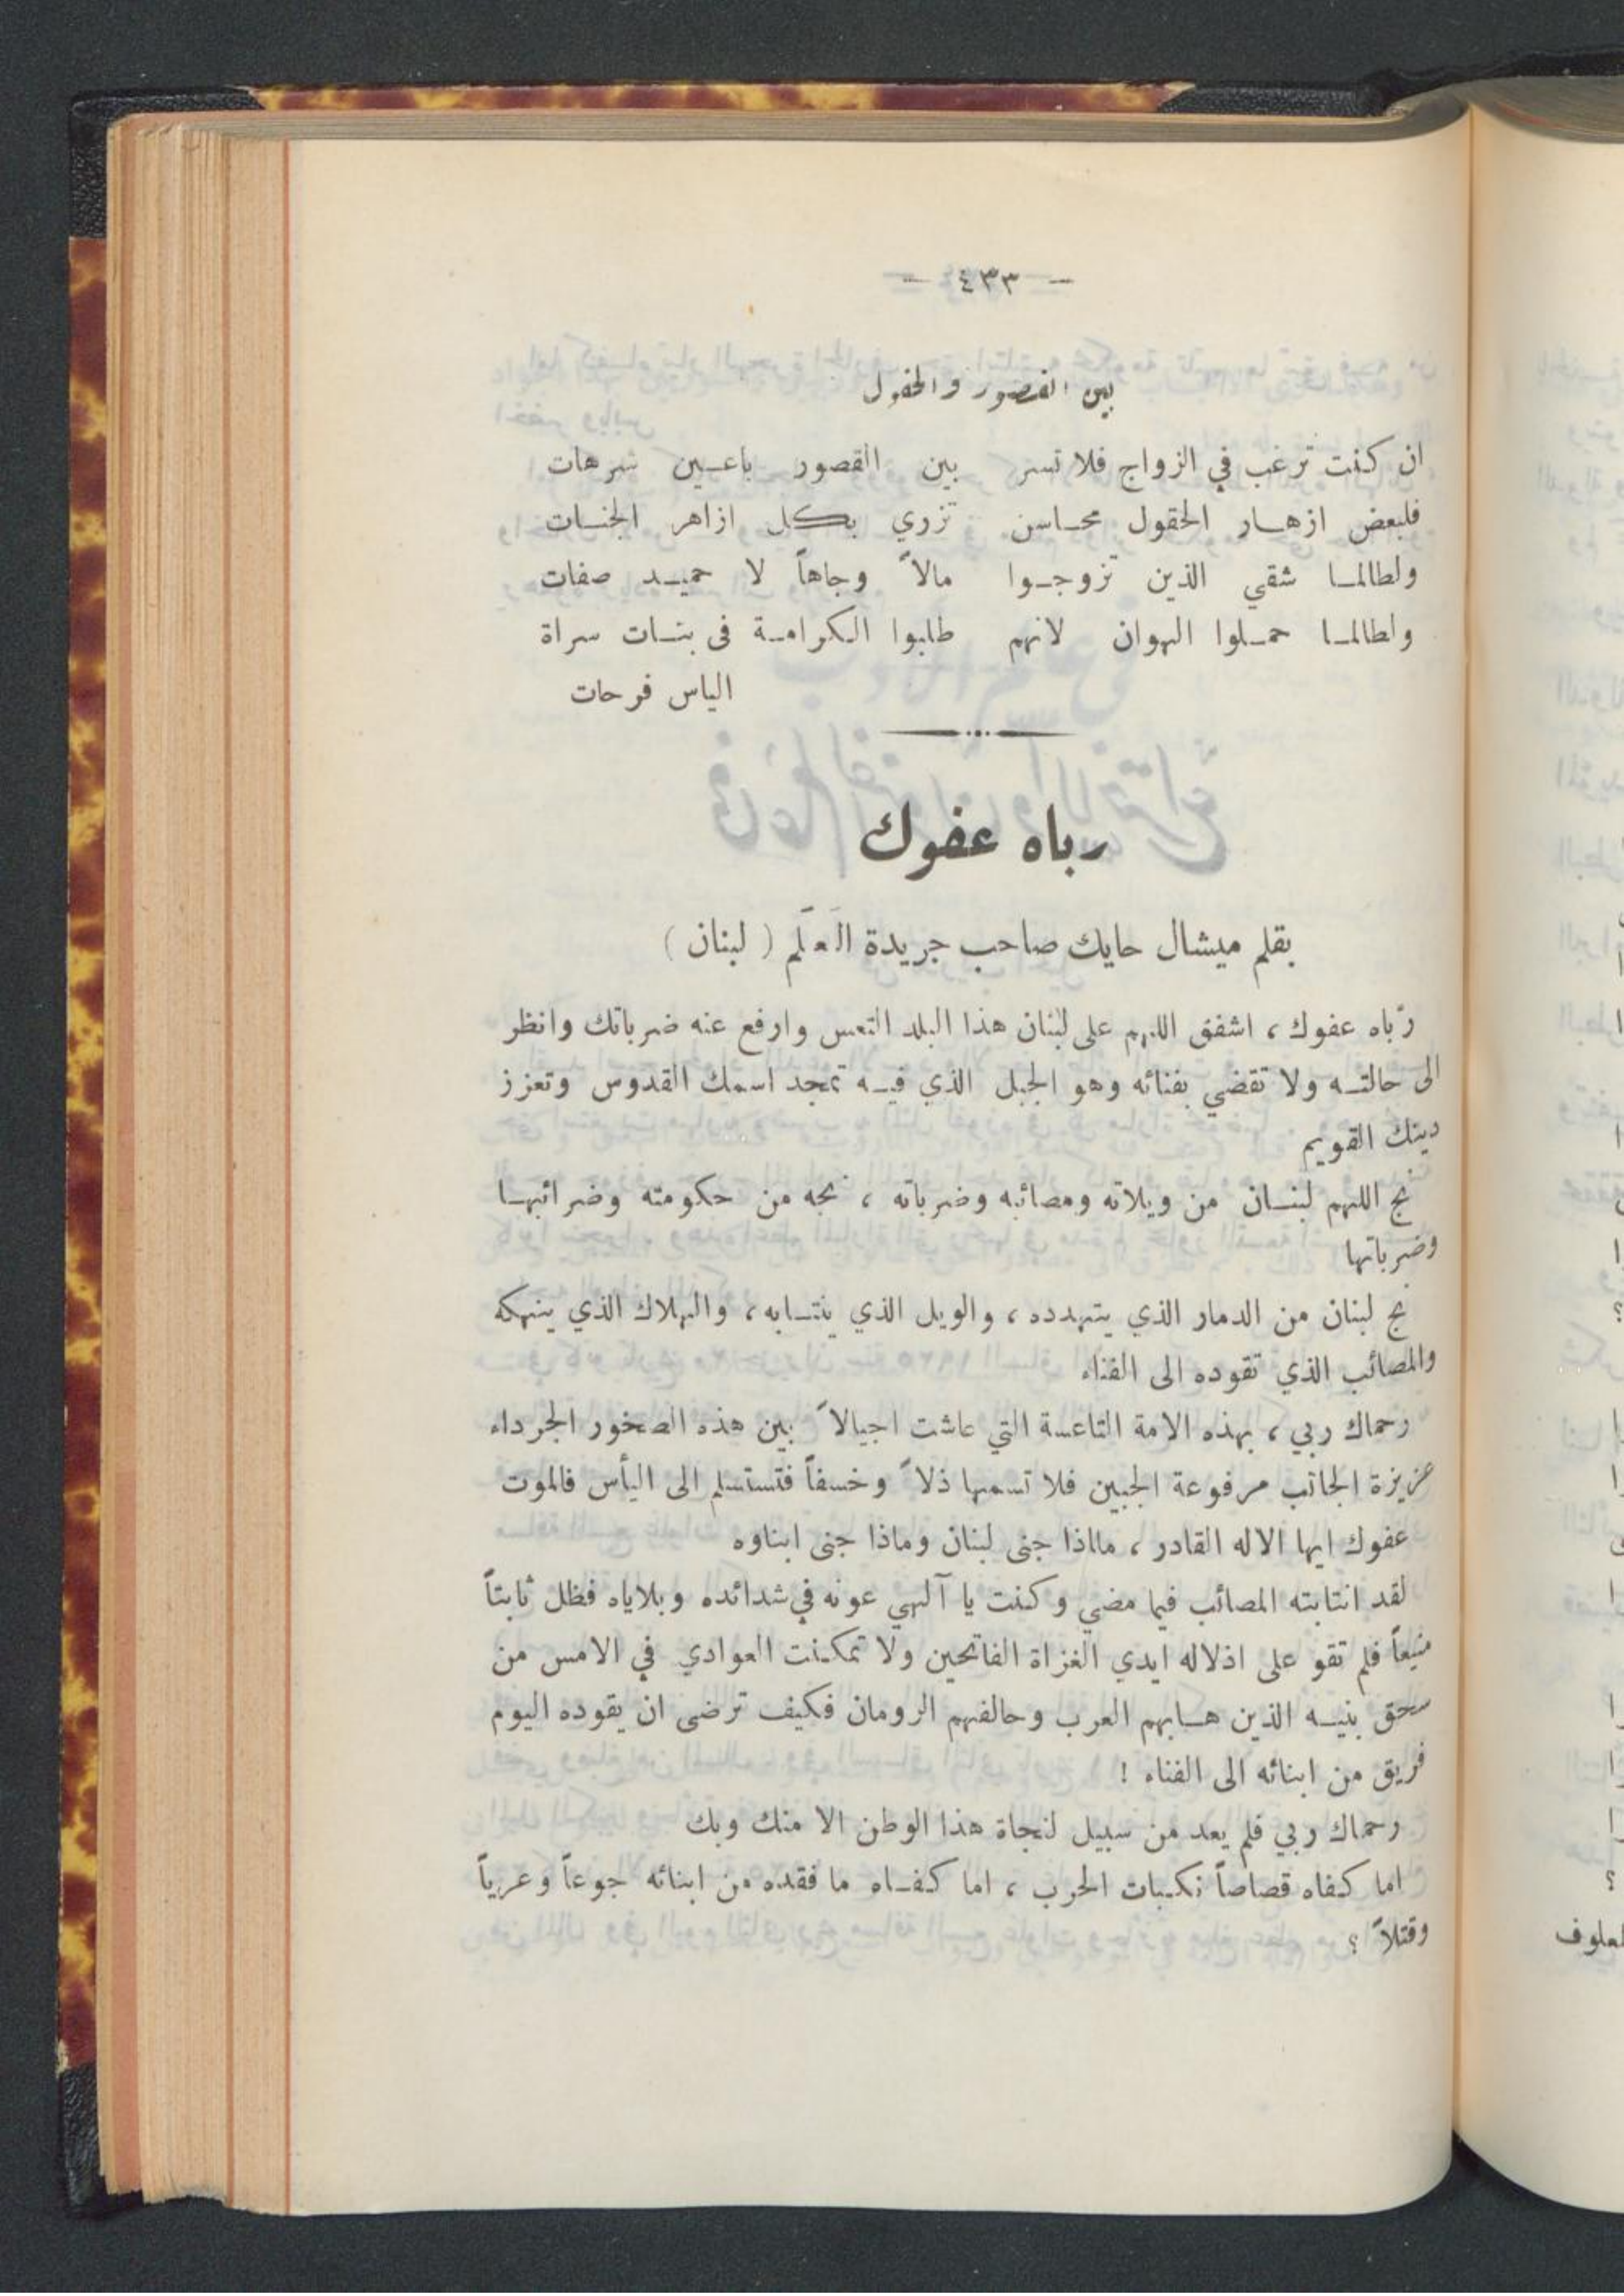 - ٤٣٣ -
بين القصور والحقول
ان كنت ترغب في الزواج فلا تسر بين القصور باعين شرهات
فلبعض ازهار الحقول محاسن تزري بكل ازاهر الجنات
ولطالما شقي الذين تزوجوا مالاً وجاهاً لا حميد صفات
ولطالما حملوا الهوان لانهم طلبوا الكرامة في بنات سراة
الياس فرحات
رباه عفوك
بقلم ميشال حايك صاحب جريدة العلَم ( لبنان )
ربّاه عفوك ، اشفق اللهم على لبنان هذا البلد التعس وارفع عنه ضرباتك وانظر
الى حالته ولا تقضي بفنائه وهو الجبل الذي فيه تمجد اسمك القدوس وتعزز
دينك القويم
نج اللهم لبنان من ويلاته ومصائبه وضرباته ، نجه من حكومته وضرائبها
وضرباتها
نج لبنان من الدمار الذي يتهدده ، والويل الذي ينتابه ، والهلاك الذي ينهكه
والمصائب الذي تقوده الى الفناء
رحماك ربي ، بهذه الامة التاعسة التي عاشت اجيالاً بين هذه الصخور الجرداء
عزيزة الجانب مرفوعة الجبين فلا تسمها ذلاً وخسفاً فتستسلم الى اليأس فالموت
عفوك ايها الاله القادر ، ماذا جنى لبنان وماذا جنى ابناوه
لقد انتابته المصائب فيما مضي وكنت يا آلهي عونه في شدائده وبلاياه فظل ثابتاً
منيعاً فلم تقو على اذلاله ايدي الغزاة الفاتحين ولا تمكنت العوادي في الامس من
سحق بنيه الذين هابهم العرب وحالفهم الرومان فكيف ترضى ان يقوده اليوم
فريق من ابنائه الى الفناء !
رحماك ربي فلم يعد من سبيل لنجاة هذا الوطن الا منك وبك
اما كفاه قصاصاً نكبات الحرب ، اما كفاه ما فقده من ابنائه جوعاً وعرياً
وقتلاً ؟